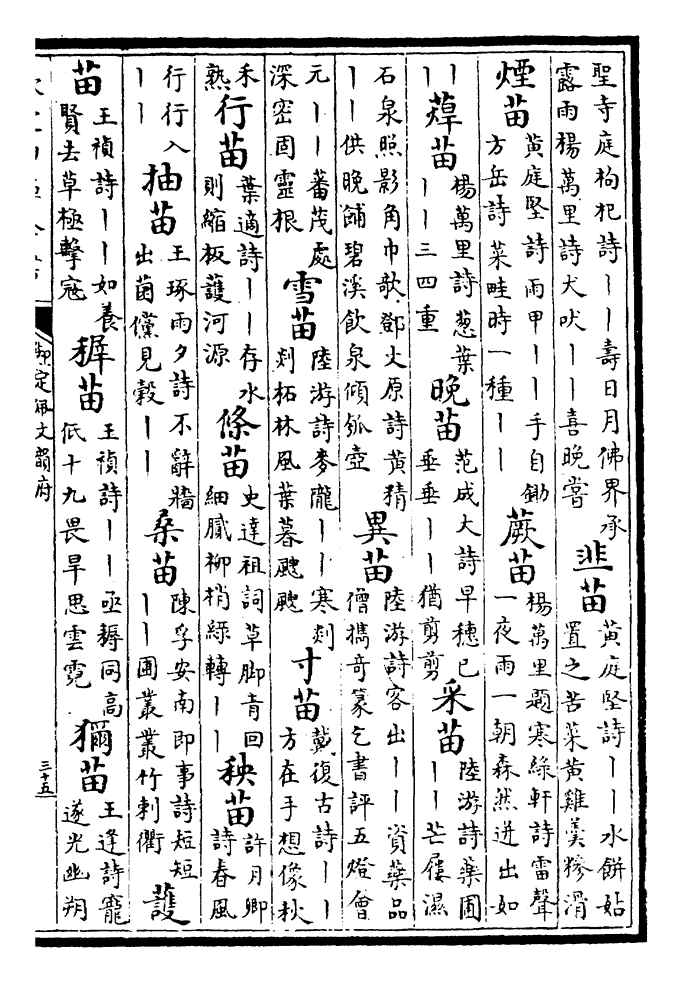 聖寺庭枸杞詩丨丨壽日月佛界承
露雨楊萬里詩犬吠丨丨喜晚嘗
韭苗
黄庭堅詩丨丨水餅姑
置之苦菜黄雞羹糝滑
煙苗
黄庭堅詩雨甲丨丨手自鋤
方岳詩菜畦時一種丨丨
蕨苗
楊萬里題寒綠軒詩雷聲
一夜雨一朝森然迸出如
丨丨
苗
楊萬里詩葱葉
丨丨三四重
晚苗
范成大詩早穗已
垂垂丨丨猶剪剪
采苗
陸游詩藥圃
丨丨芒屨濕
石泉照影角巾歌鄧文原詩黄精
丨丨供晚餔碧溪飲泉傾瓠壺
異苗
陸游詩客出丨丨資藥品
僧攜奇篆乞書評五燈會
元丨丨蕃茂處
深密固靈根
雪苗
陸游詩麥隴丨丨寒剡
剡柘林風葉暮颼颼
寸苗
戴復古詩丨丨
方在手想像秋
禾
熟
行苗
葉適詩丨丨存水
則縮板護河源
條苗
史達祖詞草脚青回
細膩柳梢綠轉丨丨
秧苗
許月卿
詩春風
行行入
丨丨
抽苗
王琢雨夕詩不辭牆
出菌儻見穀丨丨
桑苗
陳孚安南即事詩短短
丨丨圃叢叢竹刺衢
護
苗
王禎詩丨丨如養
賢去草極擊寇
穉苗
王禎詩丨丨亟耨同高
低十九畏旱思雲霓
獮苗
王逢詩寵
遂光幽朔
御定佩文韻府
三十五